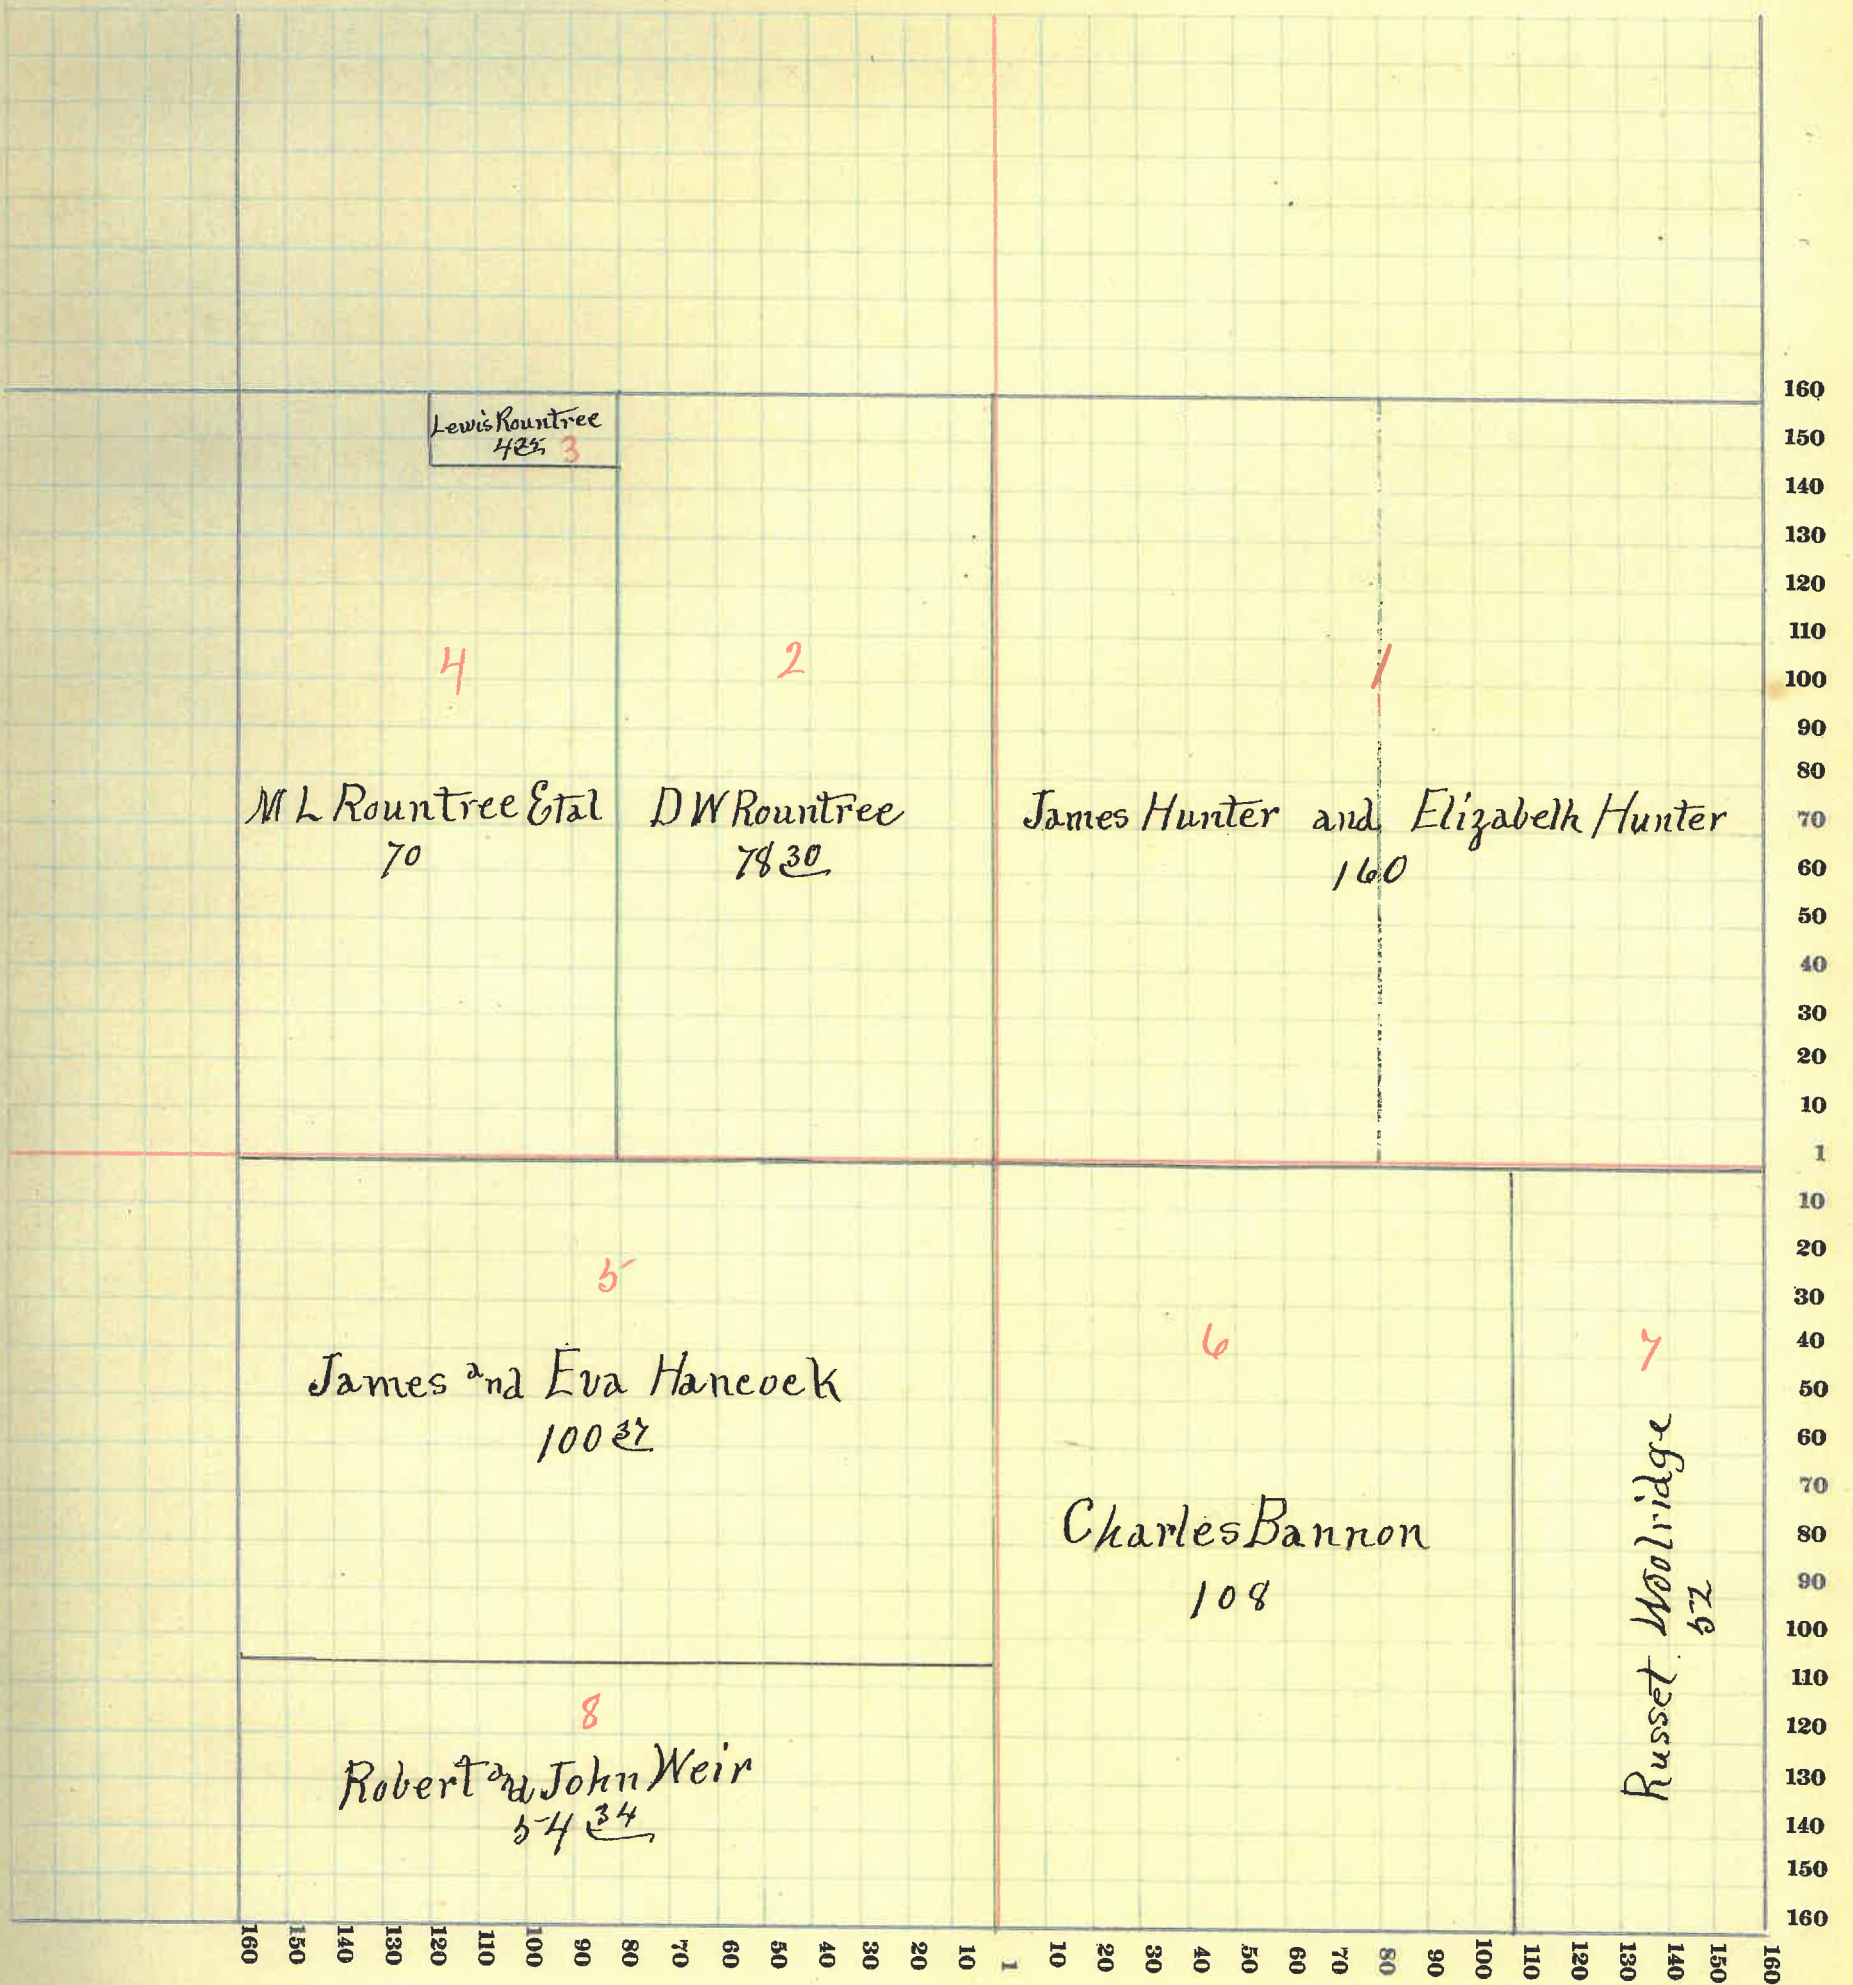 Lewis Rountree
4 25 3
4
2
1
M L Rountree Etal
70
D W Rountree
78 30
James Hunter and Elizabeth Hunter
160
5
James and Eva Hancock
100 37
6
Charles Bannon
108
7
Russet Woolridge
52
8
Robert and John Weir
54 34
160
150
140
130
120
110
100
90
80
70
60
50
40
30
20
10
1
10
20
30
40
50
60
70
80
90
100
110
120
130
140
150
160
160 150 140 130 120 110 100 90 80 70 60 50 40 30 20 10 1 10 20 30 40 50 60 70 80 90 100 110 120 130 140 150 160